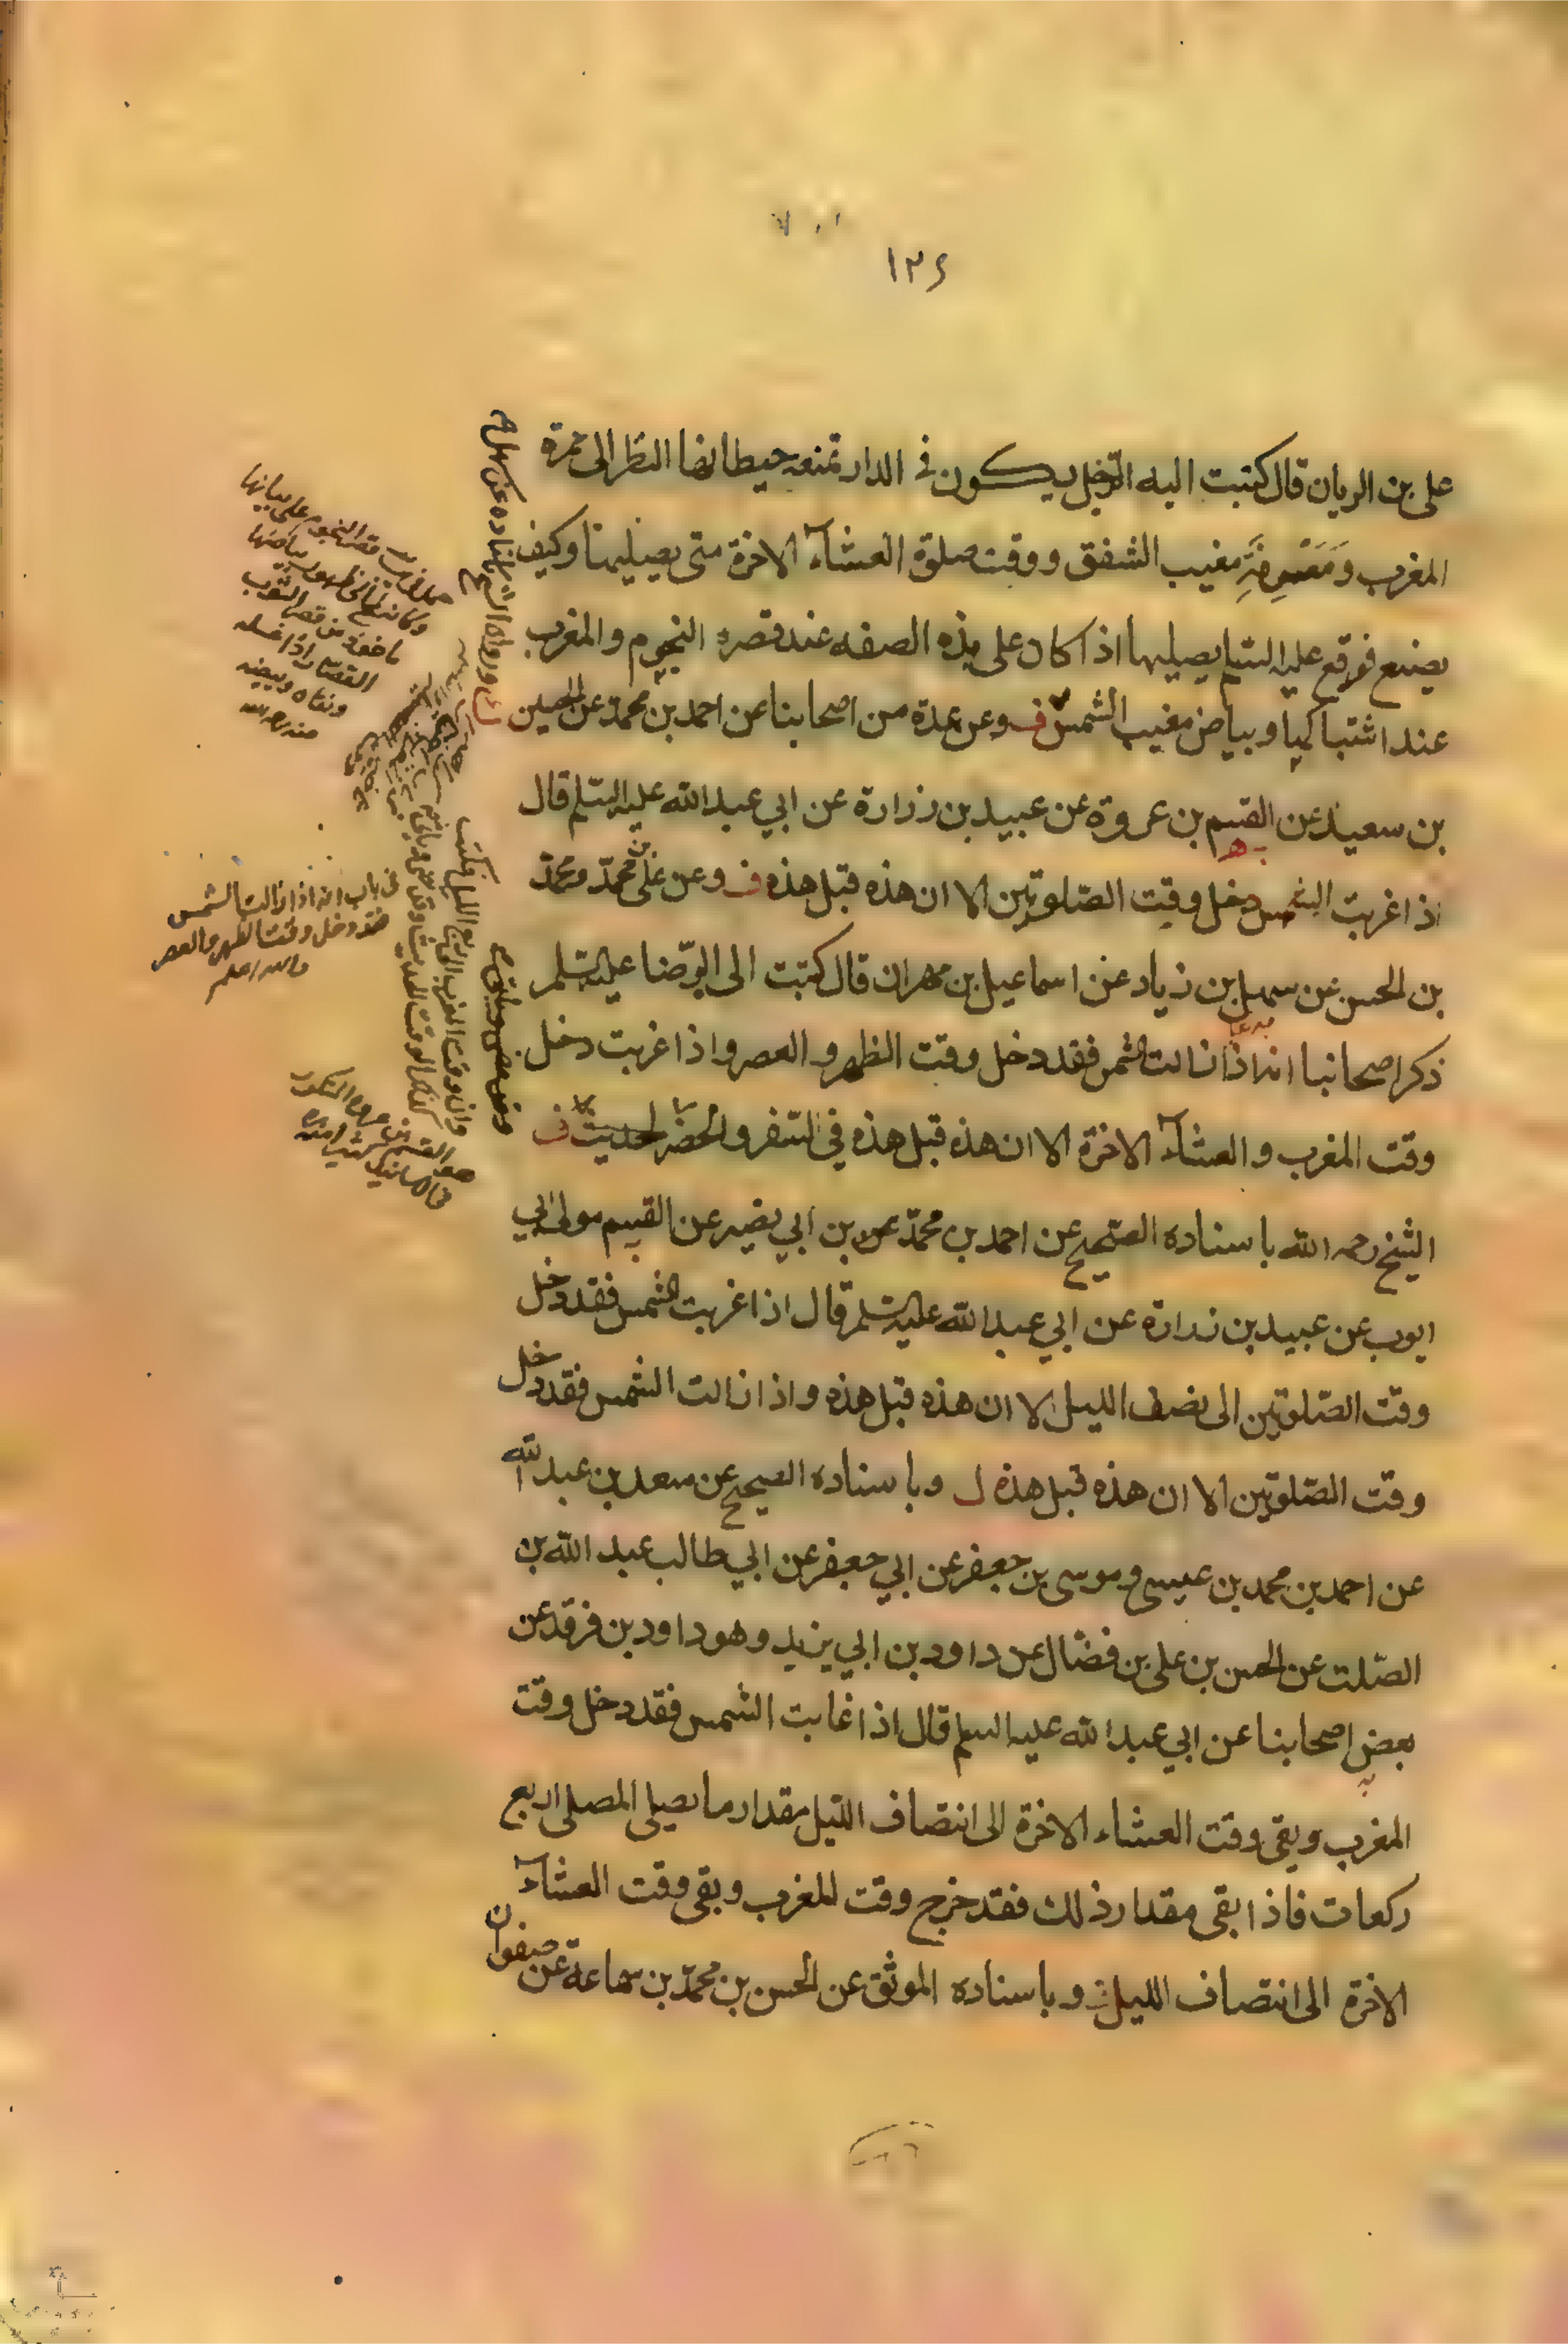 ١٢٤
على بن الريان قال كتبت اليه الرّجل يكون في الدار تمنعه حيطانها النظر الى حمرة
المغرب ومَعْرِفَةِ مغيب الشفق ووقت صلوة العشآء الاخرة متى يصليها وكيف
يصنع فوقع عليه السّلم يصليها اذا كان على هذه الصفه عند قصره النجوم والمغرب
عند اشتباكها وبياض مغيب الشمس ف وعن عدة من اصحابنا عن احمد بن محمد عن الحسين
بن سعيد عن القسم بن عروة عن عبيد بن زرارة عن ابي عبد الله عليه السّلم قال
اذا غربت الشمس دخل وقت الصّلوتين الا ان هذه قبل هذه ف وعن على بن محمّد ومحمّد
بن الحسن عن سهل بن زياد عن اسماعيل بن مهران قال كتبت الى الرّضا عليه السّلم
ذكر اصحابنا انه اذا زالت الشمس فقد دخل وقت الظهر والعصر واذا غربت دخل
وقت المغرب والعشآء الاخرة الا ان هذه قبل هذه في السّفر والحضر الحديث ف
الشيخ رحمه الله باسناده الصّحيح عن احمد بن محمّد عن بن ابي نصير عن القسم مولى ابي
ايوب عن عبيد بن زرارة عن ابي عبد الله عليه السّلم قال اذا غربت الشمس فقد دخل
وقت الصّلوتين الى نصف الليل الا ان هذه قبل هذه واذا زالت الشمس فقد دخل
وقت الصّلوتين الا ان هذه قبل هذه ل وباسناده الصحيح عن سعد بن عبد الله
عن احمد بن محمد بن عيسى وموسى بن جعفر عن ابي جعفر عن ابي طالب عبد الله بن
الصّلت عن الحسن بن على بن فضّال عن داود بن ابي يزيد وهو داود بن فرقد عن
بعض اصحابنا عن ابي عبد الله عليه السلم قال اذا غابت الشمس فقد دخل وقت
المغرب وبقى وقت العشاء الاخرة الى انتصاف الليل مقدار ما يصلى المصلى اربع
ركعات فاذا بقى مقدار ذلك فقد خرج وقت المغرب وبقى وقت العشآء
الاخرة الى انتصاف الليل وباسناده الموثق عن الحسن بن محمّد بن سماعة عن صفوان
قصر النجوم على بيانها
ماخوذة من قصر الثوب
القصّار اذا غسله
ونقاه وبيضه
منه رحمه الله
في باب انه اذا زالت الشمس
فقد دخل وقت الظهر والعصر
والله اعلم